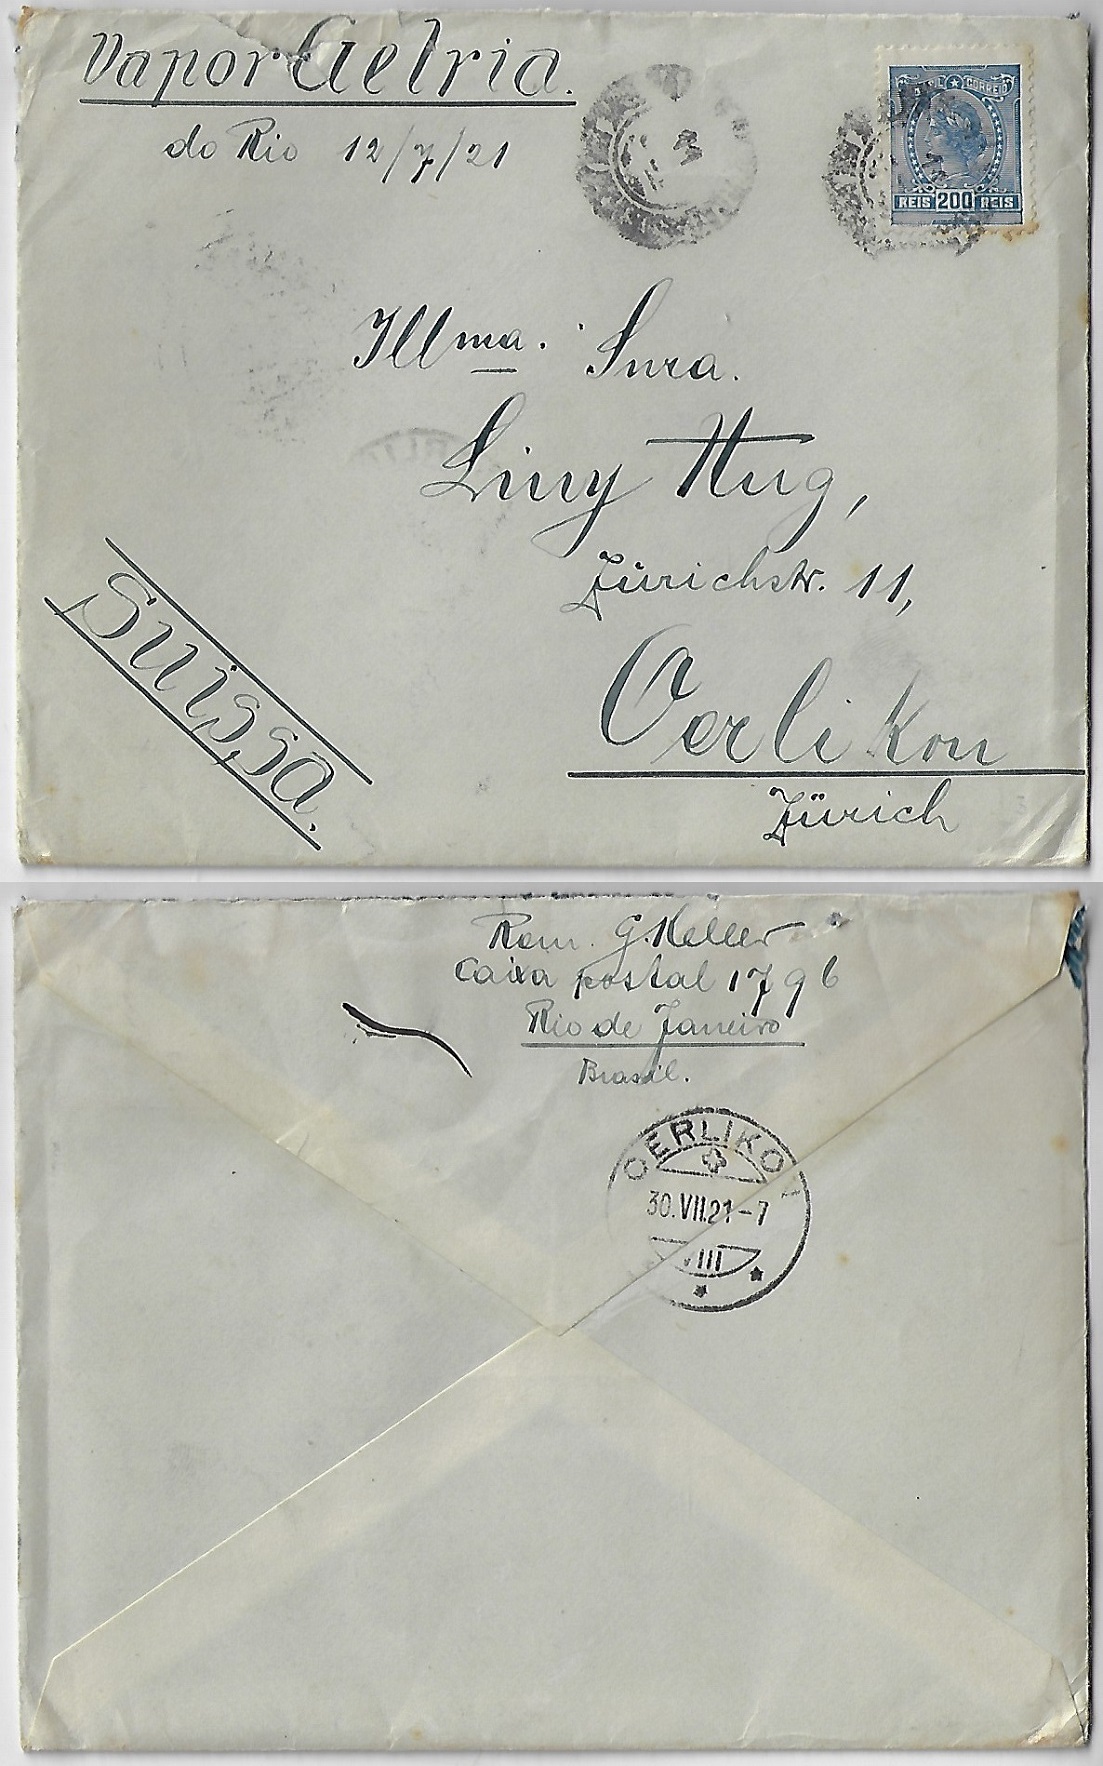 Vapor Gelria.
do Rio 12/7/21
BRASIL CORREIO
REIS 200 REIS
Illma. Snra.
Liny Hug,
Zürichstr. 11,
Oerlikon
Zürich
Suissa.
Rem. G. Keller
Caixa postal 1796
Rio de Janeiro
Brasil.
OERLIKON
30.VII.21-7
VIII